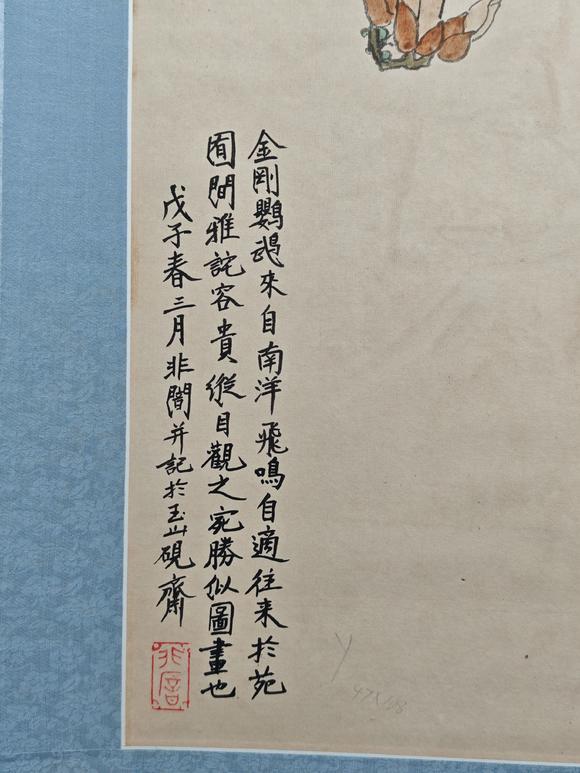 金剛鸚鵡來自南洋飛鳴自適往来於苑
囿間雅詫容貴縱目觀之宛勝似圖畫也
戊子春三月非闇并記於玉山硯齋
非闇